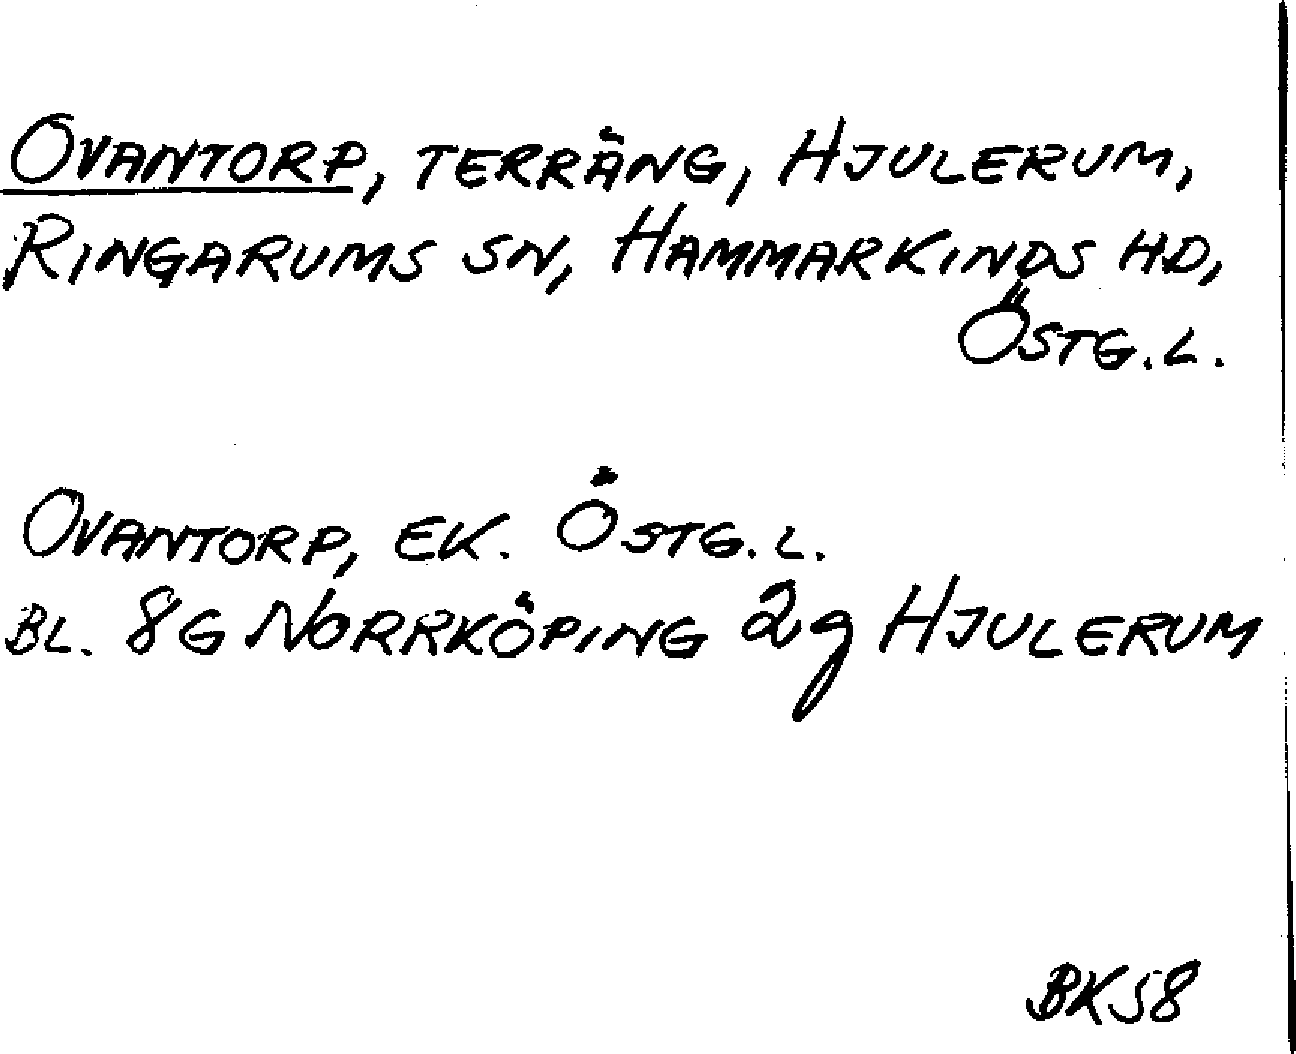 OVANTORP, TERRÄNG, HJULERUM,
RINGARUMS SN, HAMMARKINDS HD,
ÖSTG.L.
OVANTORP, EK. ÖSTG.L.
BL. 8G NORRKÖPING 2g HJULERUM
BK58